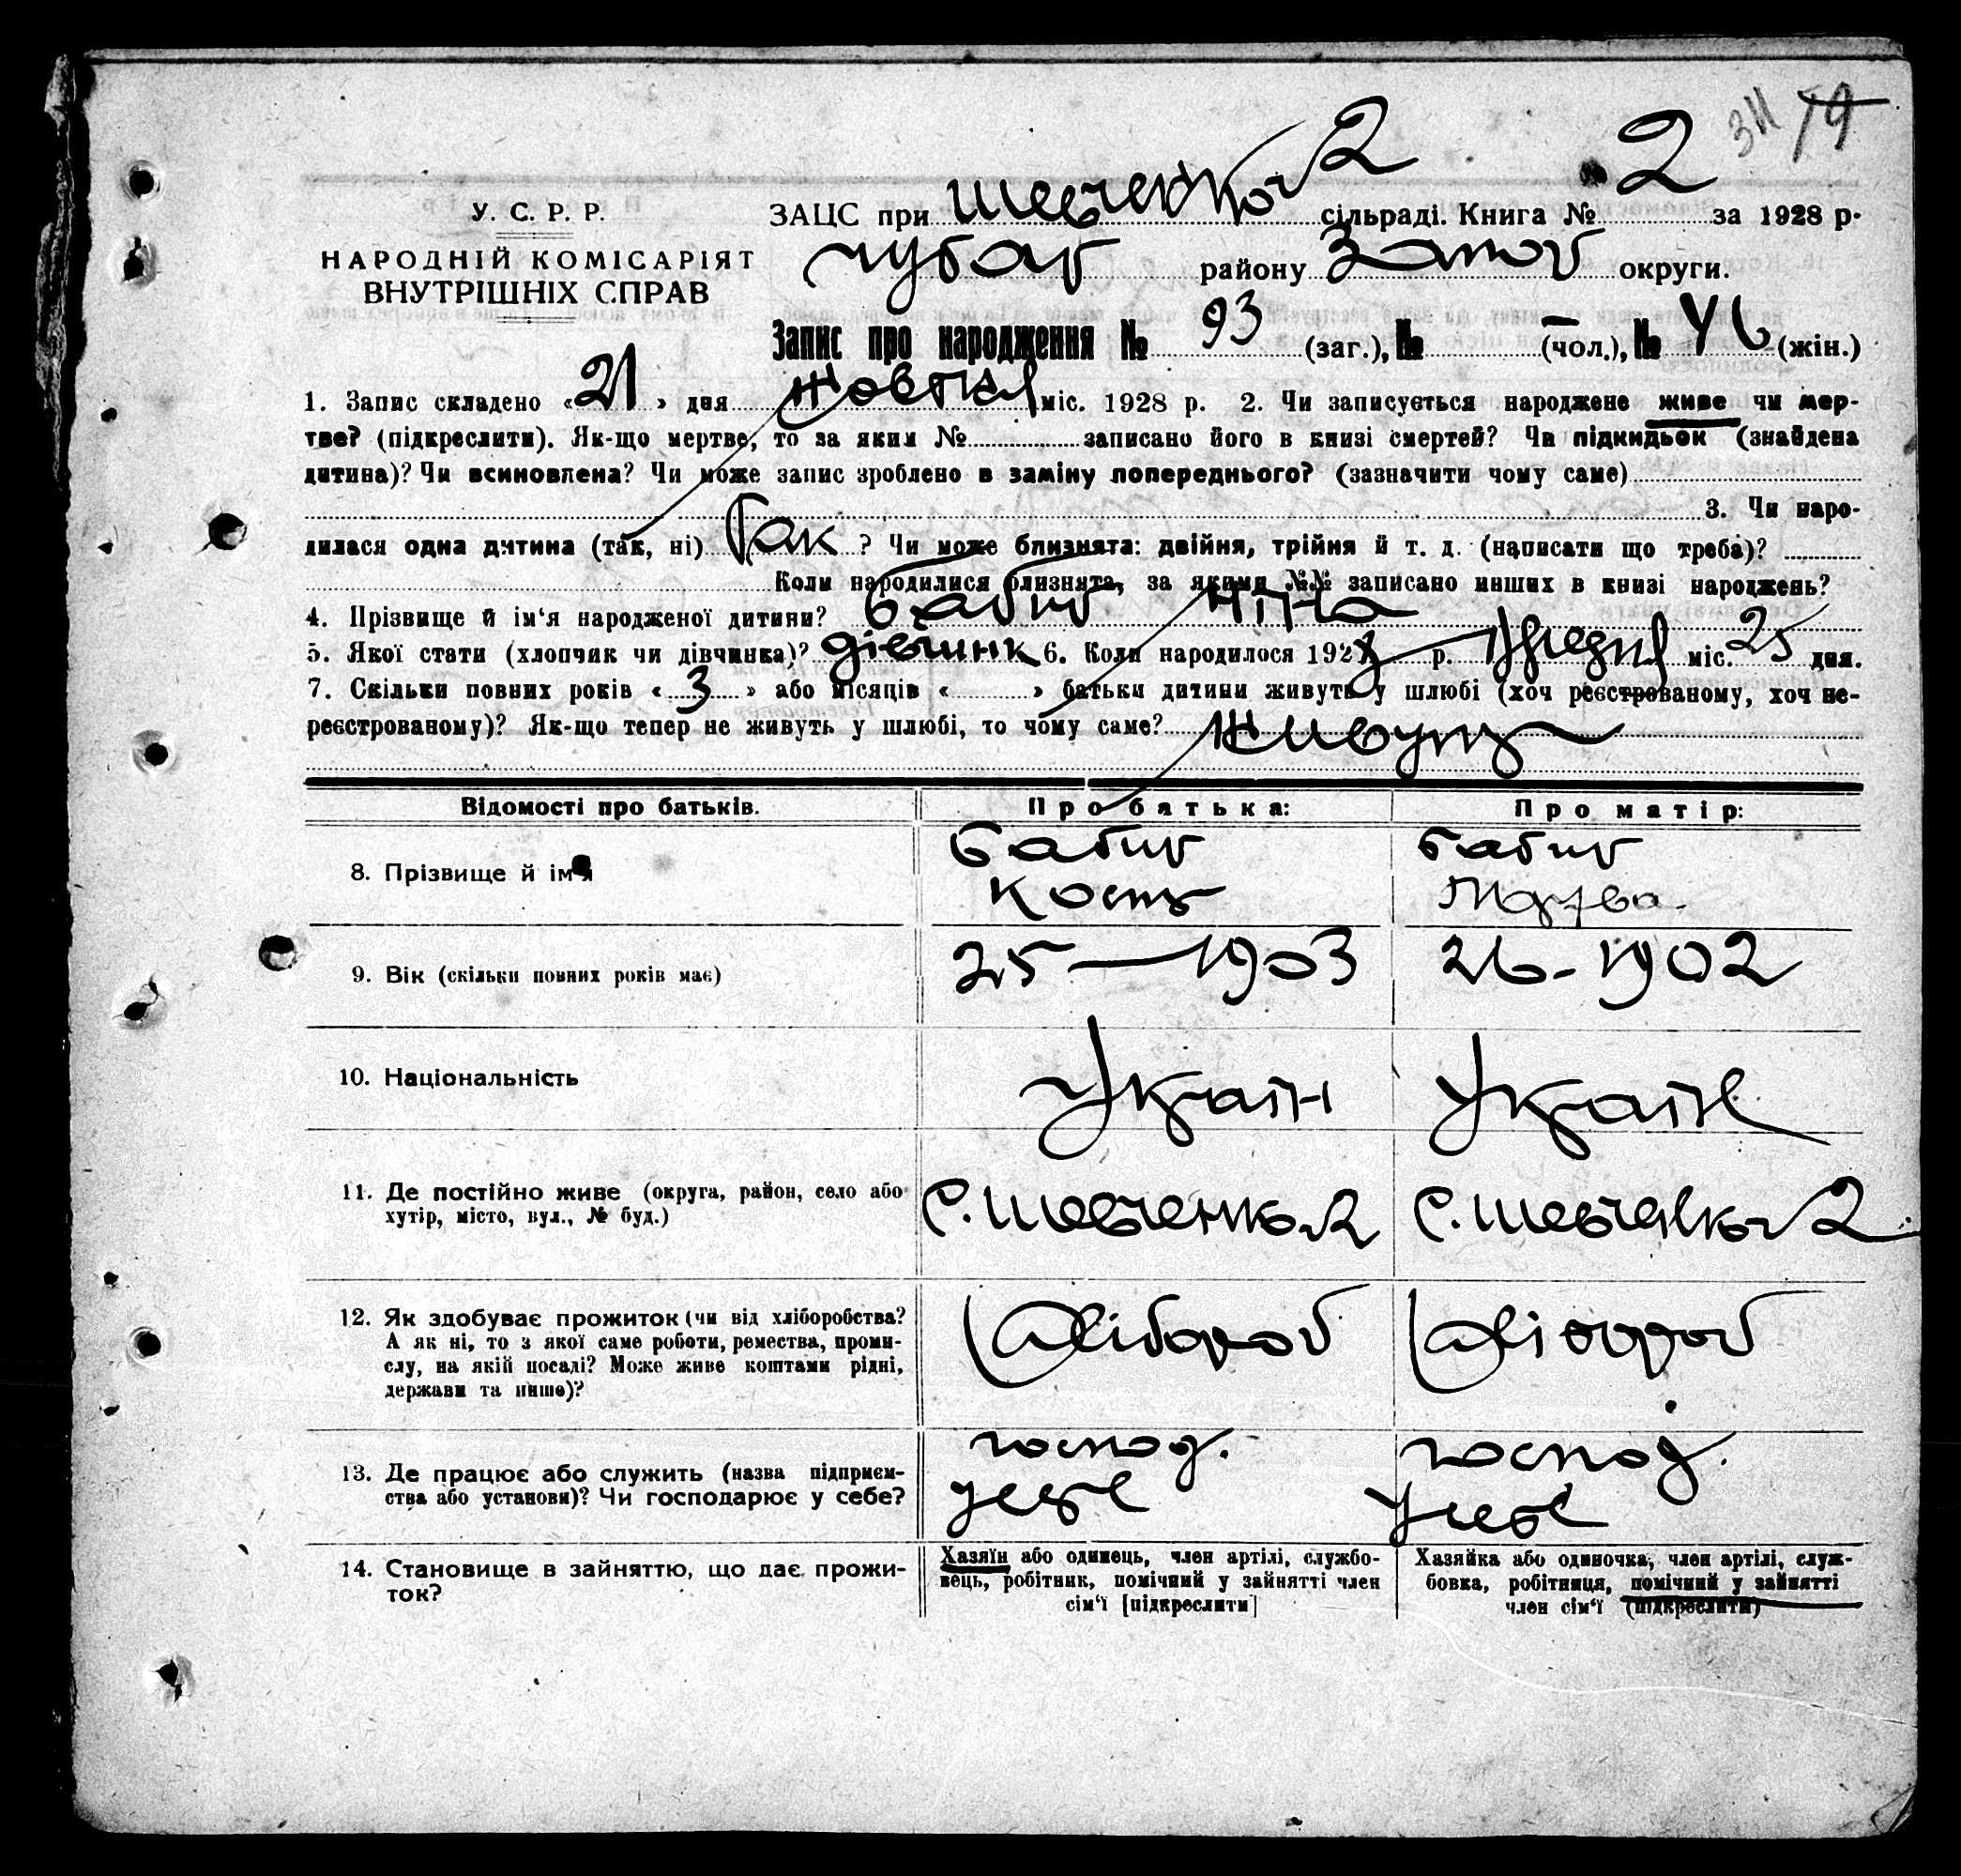 311 79
У. С. Р. Р.
НАРОДНІЙ КОМІСАРІЯТ
ВНУТРІШНІХ СПРАВ
ЗАЦС при Шевченков 2 сільраді. Книга № 2 за 1928 р.
Чубар району Запоў округи.
Запис про народження № 93 (заг.), № — (чол.), № 46 (жін.)
1. Запис складено « 21 » дня жовтня міс. 1928 р. 2. Чи записується народжене живе чи мер-
тве? (підкреслити). Як-що мертве, то за яким № записано його в книзі смертей? Чи підкидьок (знайдена
дитина)? Чи всиновлена? Чи може запис зроблено в заміну попереднього? (зазначити чому саме)
3. Чи наро-
дилася одна дитина (так, ні) Так ? Чи може близнята: двійня, трійня й т. д. (написати що треба)?
Коли народилися близнята, за якими №№ записано инших в книзі народжень?
4. Прізвище й ім‘я народженої дитини? Бабич Ніна
5. Якої стати (хлопчик чи дівчинка)? дівчинк 6. Коли народилося 192 р. міс. 25 дня.
7. Скільки повних років « 3 » або місяців « » батьки дитини живуть у шлюбі (хоч реєстрованому, хоч не-
реєстрованому)? Як-що тепер не живуть у шлюбі, то чому саме? Живуть
Відомості про батьків. Про батька: Про матір:
8. Прізвище й ім‘я
Бабич
Кость
Бабич
9. Вік (скільки повних років має) 25—1903 26-1902
10. Національність Україн Україн
11. Де постійно живе (округа, район, село або
хутір, місто, вул., № буд.)
с. Шевченков 2 с. Шевченков 2
12. Як здобуває прожиток (чи від хліборобства?
А як ні, то з якої саме роботи, ремества, проми-
слу, на якій посаді? Може живе коштами рідні,
держави та инше)?
Хлібороб Хлібороб
13. Де працює або служить (назва підприєм-
ства або установи)? Чи господарює у себе?
господ.
у себе
господ.
у себе
14. Становище в зайняттю, що дає прожи-
ток?
Хазяїн або одинець, член артілі, службо-
вець, робітник, помічний у зайнятті член
сім‘ї [підкреслити]
Хазяйка або одиночка, член артілі, служ-
бовка, робітниця, помічний у зайнятті
член сім‘ї (підкреслити)